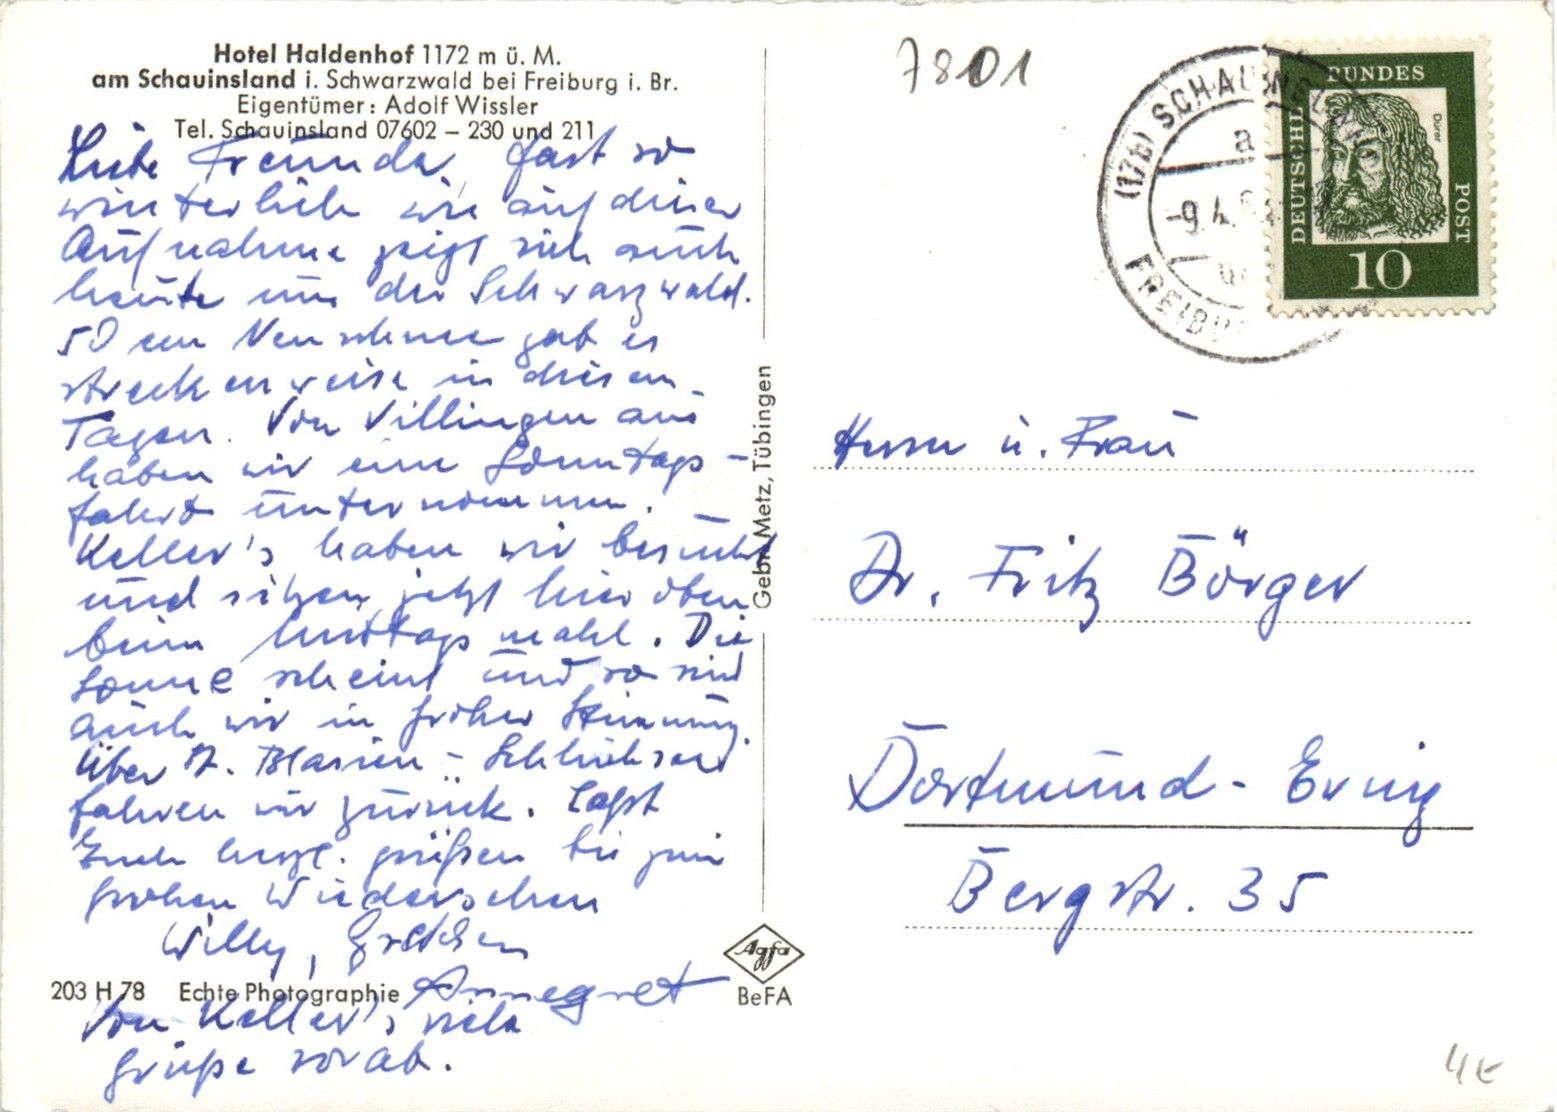 Hotel Haldenhof 1172 m ü. M.
am Schauinsland i. Schwarzwald bei Freiburg i. Br.
Eigentümer: Adolf Wissler
Tel. Schauinsland 07602 – 230 und 211
Liebe Freunde, fast so
winterlich wie auf dieser
Aufnahme zeigt sich auch
heute uns der Schwarzwald.
50 cm Neuschnee gab es
streckenweise in diesen
Tagen. Von Villingen aus
haben wir eine Sonntags-
fahrt unternommen.
Keller's haben wir besucht
und sitzen jetzt hier oben
beim Mittagsmahl. Die
Sonne scheint und so sind
auch wir in froher Stimmung.
Über St. Blasien - Schluchsee
fahren wir zurück. Laßt
Euch herzl. grüßen bis zum
frohen Wiedersehen
Willy, Gretchen
Annegret
Von Keller's viele
Grüße vorab.
203 H 78 Echte Photographie
Gebr. Metz, Tübingen
Agfa
BeFA
7801
(17b) SCHAUINSLAND
a
-9.4.
FREIBU
DEUTSCHE BUNDES POST
Dürer
10
Herrn u. Frau
Dr. Fritz Börger
Dortmund - Eving
Bergstr. 35
4 €